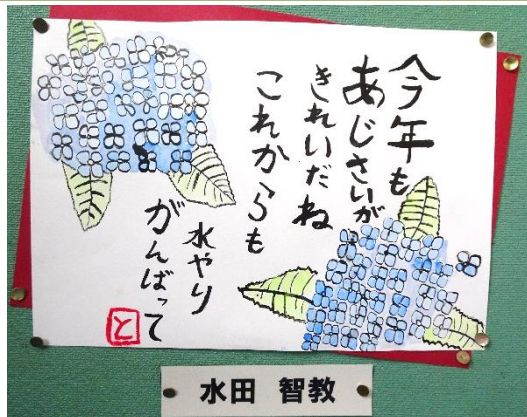 今年も
あじさいが
きれいだね
これからも
水やり
がんばって
と
水田 智教